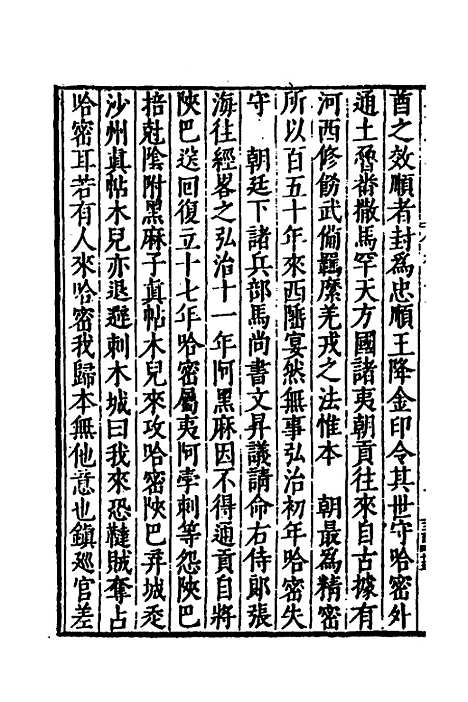 酋之效順者封為忠順王降金印令其世守哈密外
通土魯番撒馬罕天方國諸夷朝貢往來自古據有
河西修飭武備羈縻羌戎之法惟本　朝最為精密
所以百五十年來西陲宴然無事弘治初年哈密失
守　朝廷下諸兵部馬尚書文昇議請命右侍郎張
海往經畧之弘治十一年阿黑麻因不得通貢自將
陝巴送回復立十七年哈密屬夷阿孛剌等怨陝巴
掊尅陰附黑麻子真帖木兒來攻哈密陝巴弃城走
沙州真帖木兒亦退遯剌木城曰我來恐韃賊奪占
哈密耳若有人來哈密我歸本無他意也鎮廵官差